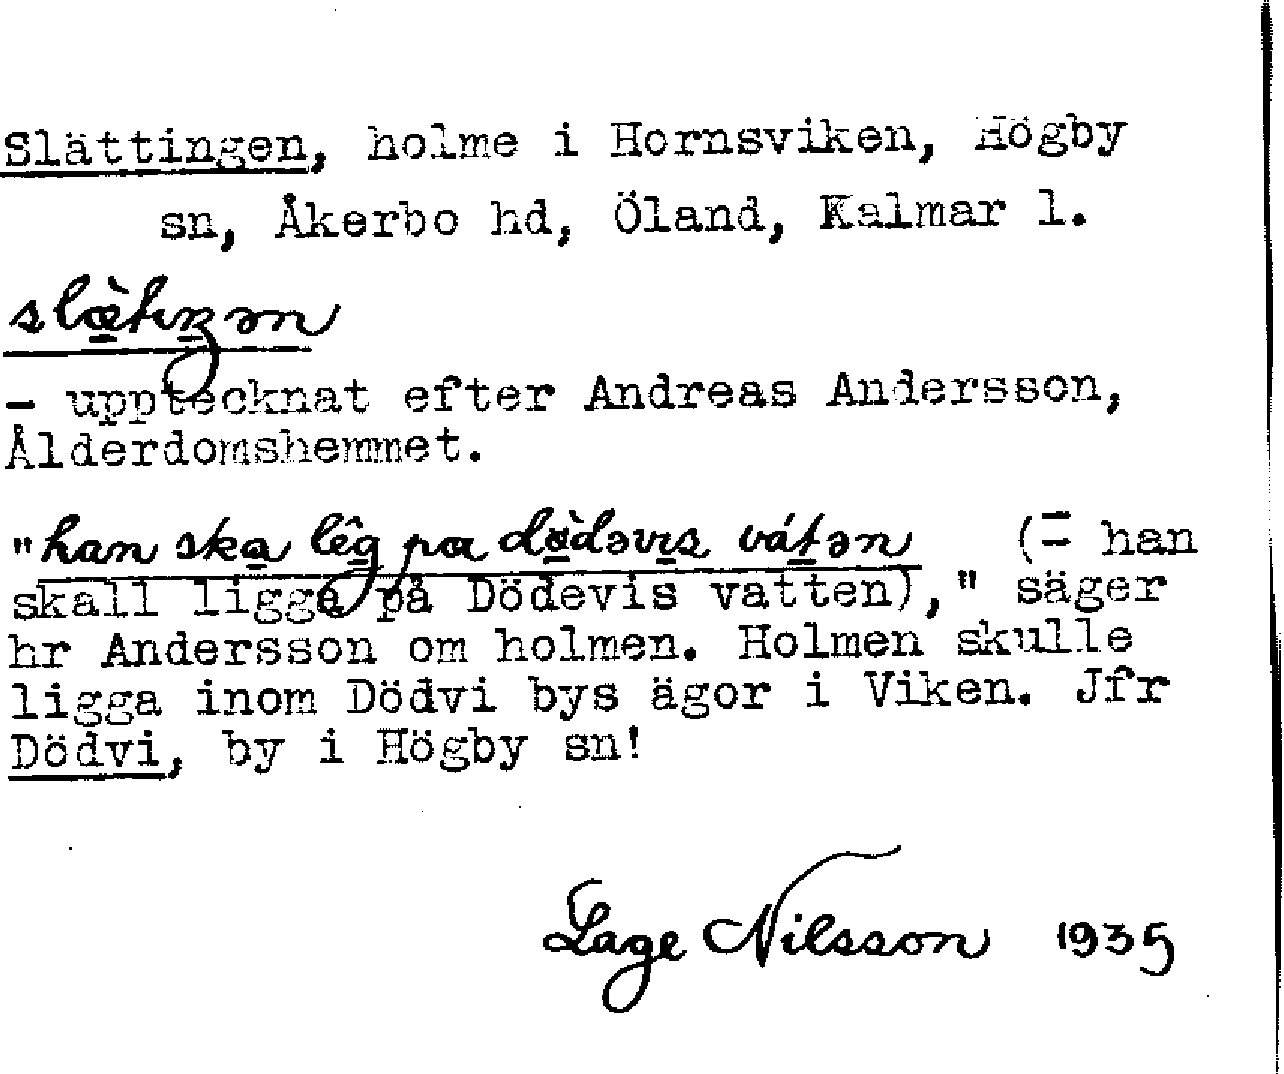 Slättingen, holme i Hornsviken, Högby
sn, Åkerbo hd, Öland, Kalmar l.
slæ̀tiŋən
- upptecknat efter Andreas Andersson,
Ålderdomshemmet.
"han ska lêg pɑ dö̀dəvis vátən (= han
skall ligga på Dödevis vatten)," säger
hr Andersson om holmen. Holmen skulle
ligga inom Dödvi bys ägor i Viken. Jfr
Dödvi, by i Högby sn!
Lage Nilsson 1935